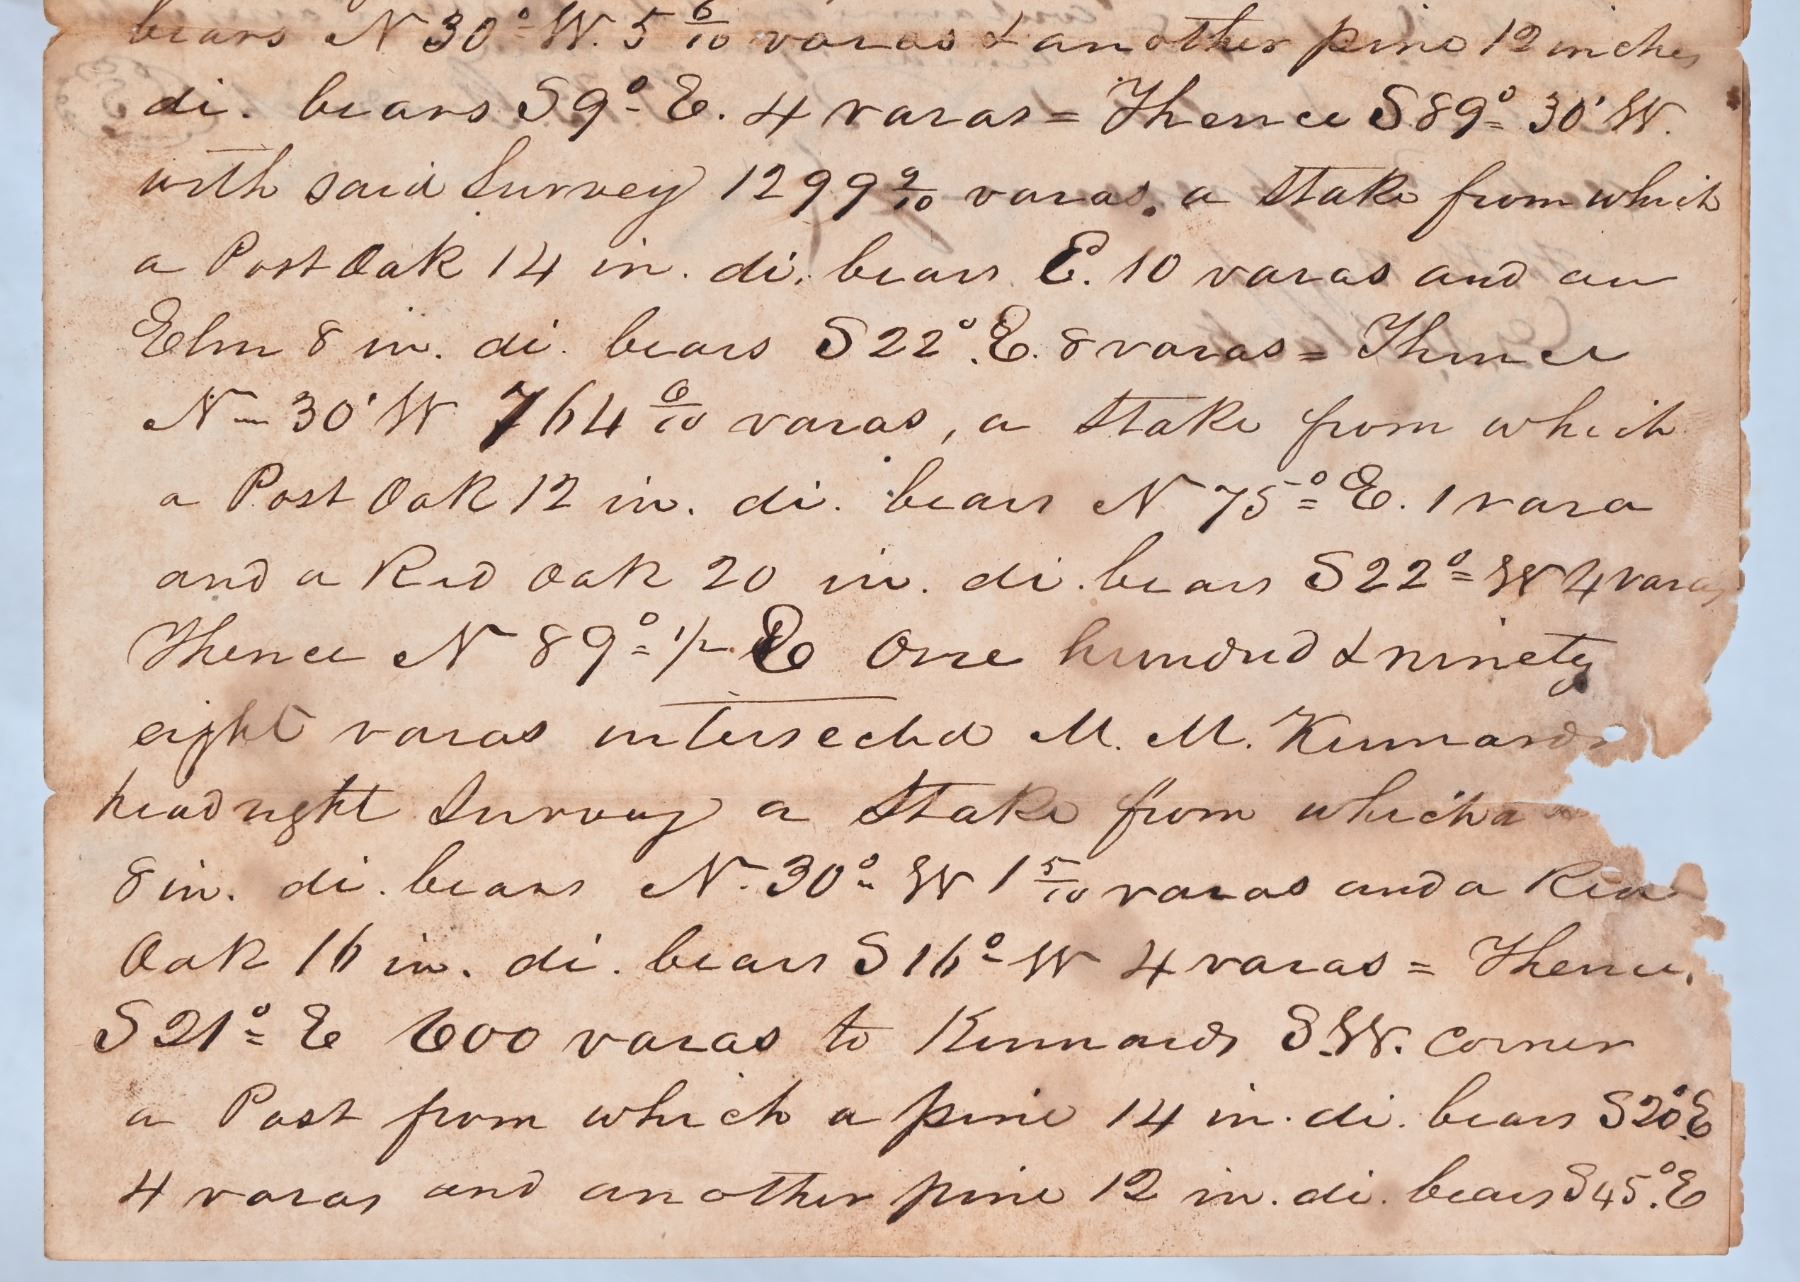 bears N 30° W. 5 6/10 varas & another pine 12 inches
di. bears S 9° E. 4 varas = Thence S 89° 30' W.
with said Survey 1299 9/10 varas, a Stake from which
a Post Oak 14 in. di. bears E. 10 varas and an
Elm 8 in. di. bears S 22° E. 8 varas = Thence
N — 30' W 764 6/10 varas, a Stake from which
a Post Oak 12 in. di. bears N 75° E. 1 vara
and a Red Oak 20 in. di. bears S 22° W 4 varas
Thence N 89° 1/2 E One hundred & ninety
eight varas intersected M. M. Kennards
headright Survey a Stake from which a
8 in. di. bears N. 30° W 1 5/10 varas and a Red
Oak 16 in. di. bears S 16° W 4 varas = Thence,
S 21° E 600 varas to Kennards S.W. corner
a Post from which a pine 14 in. di. bears S 20° E
4 varas and another pine 12 in. di. bears S 45° E